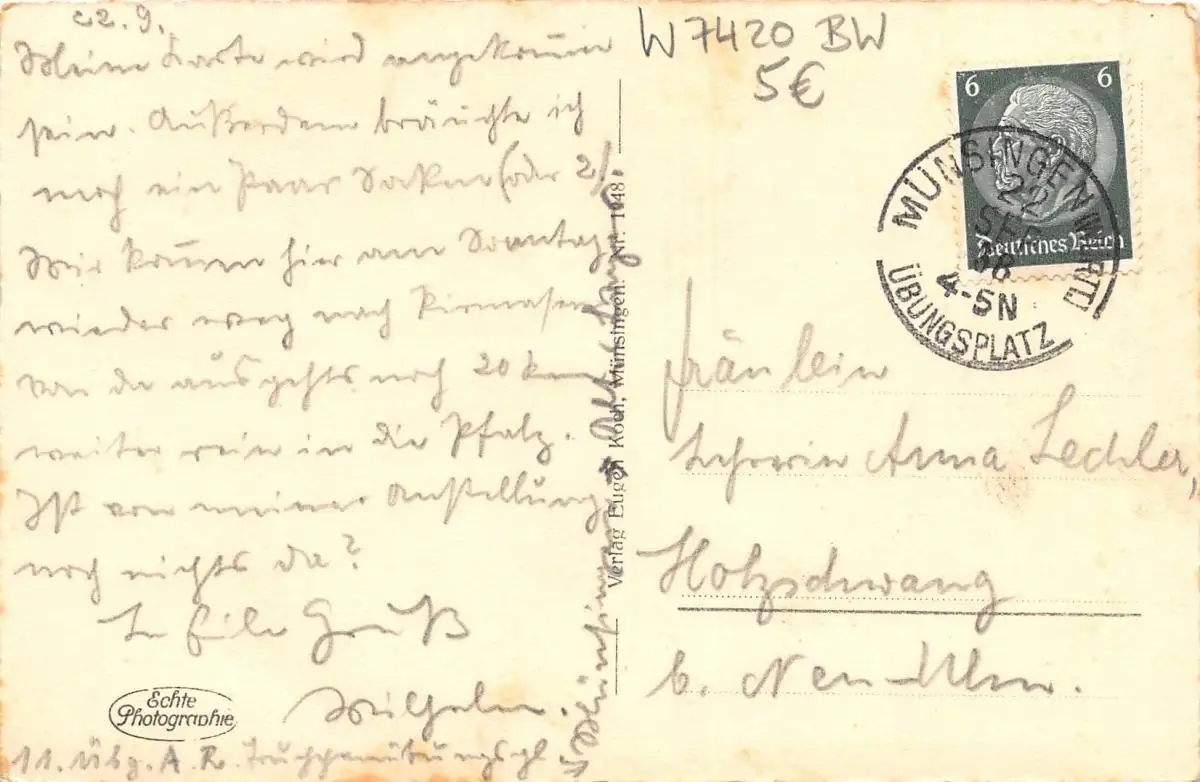 22.9.
Meine Karte wird angekommen
sein. Außerdem bräuchte ich
noch ein Paar Socken (oder 2).
Wir kommen hier am Sonntag
wieder weg nach Pirmasens
von da aus gehts noch 20 km
weiter rein in die Pfalz.
Ist von meiner Anstellung
noch nichts da?
In Eile Gruß
Wilhelm.
11. Übg. A. R. Truppenübungspl.
Münsingen Altes Lager.
Echte
Photographie
Verlag Eugen Koch, Münsingen. Nr. 1048
W7420 BW
5€
6 6
Deutsches Reich
MÜNSINGEN (WÜRTT)
22
SEP
38
4-5N
ÜBUNGSPLATZ
Fräulein
Lehrerin Anna Lechler,
Holzschwang
b. Neu-Ulm.